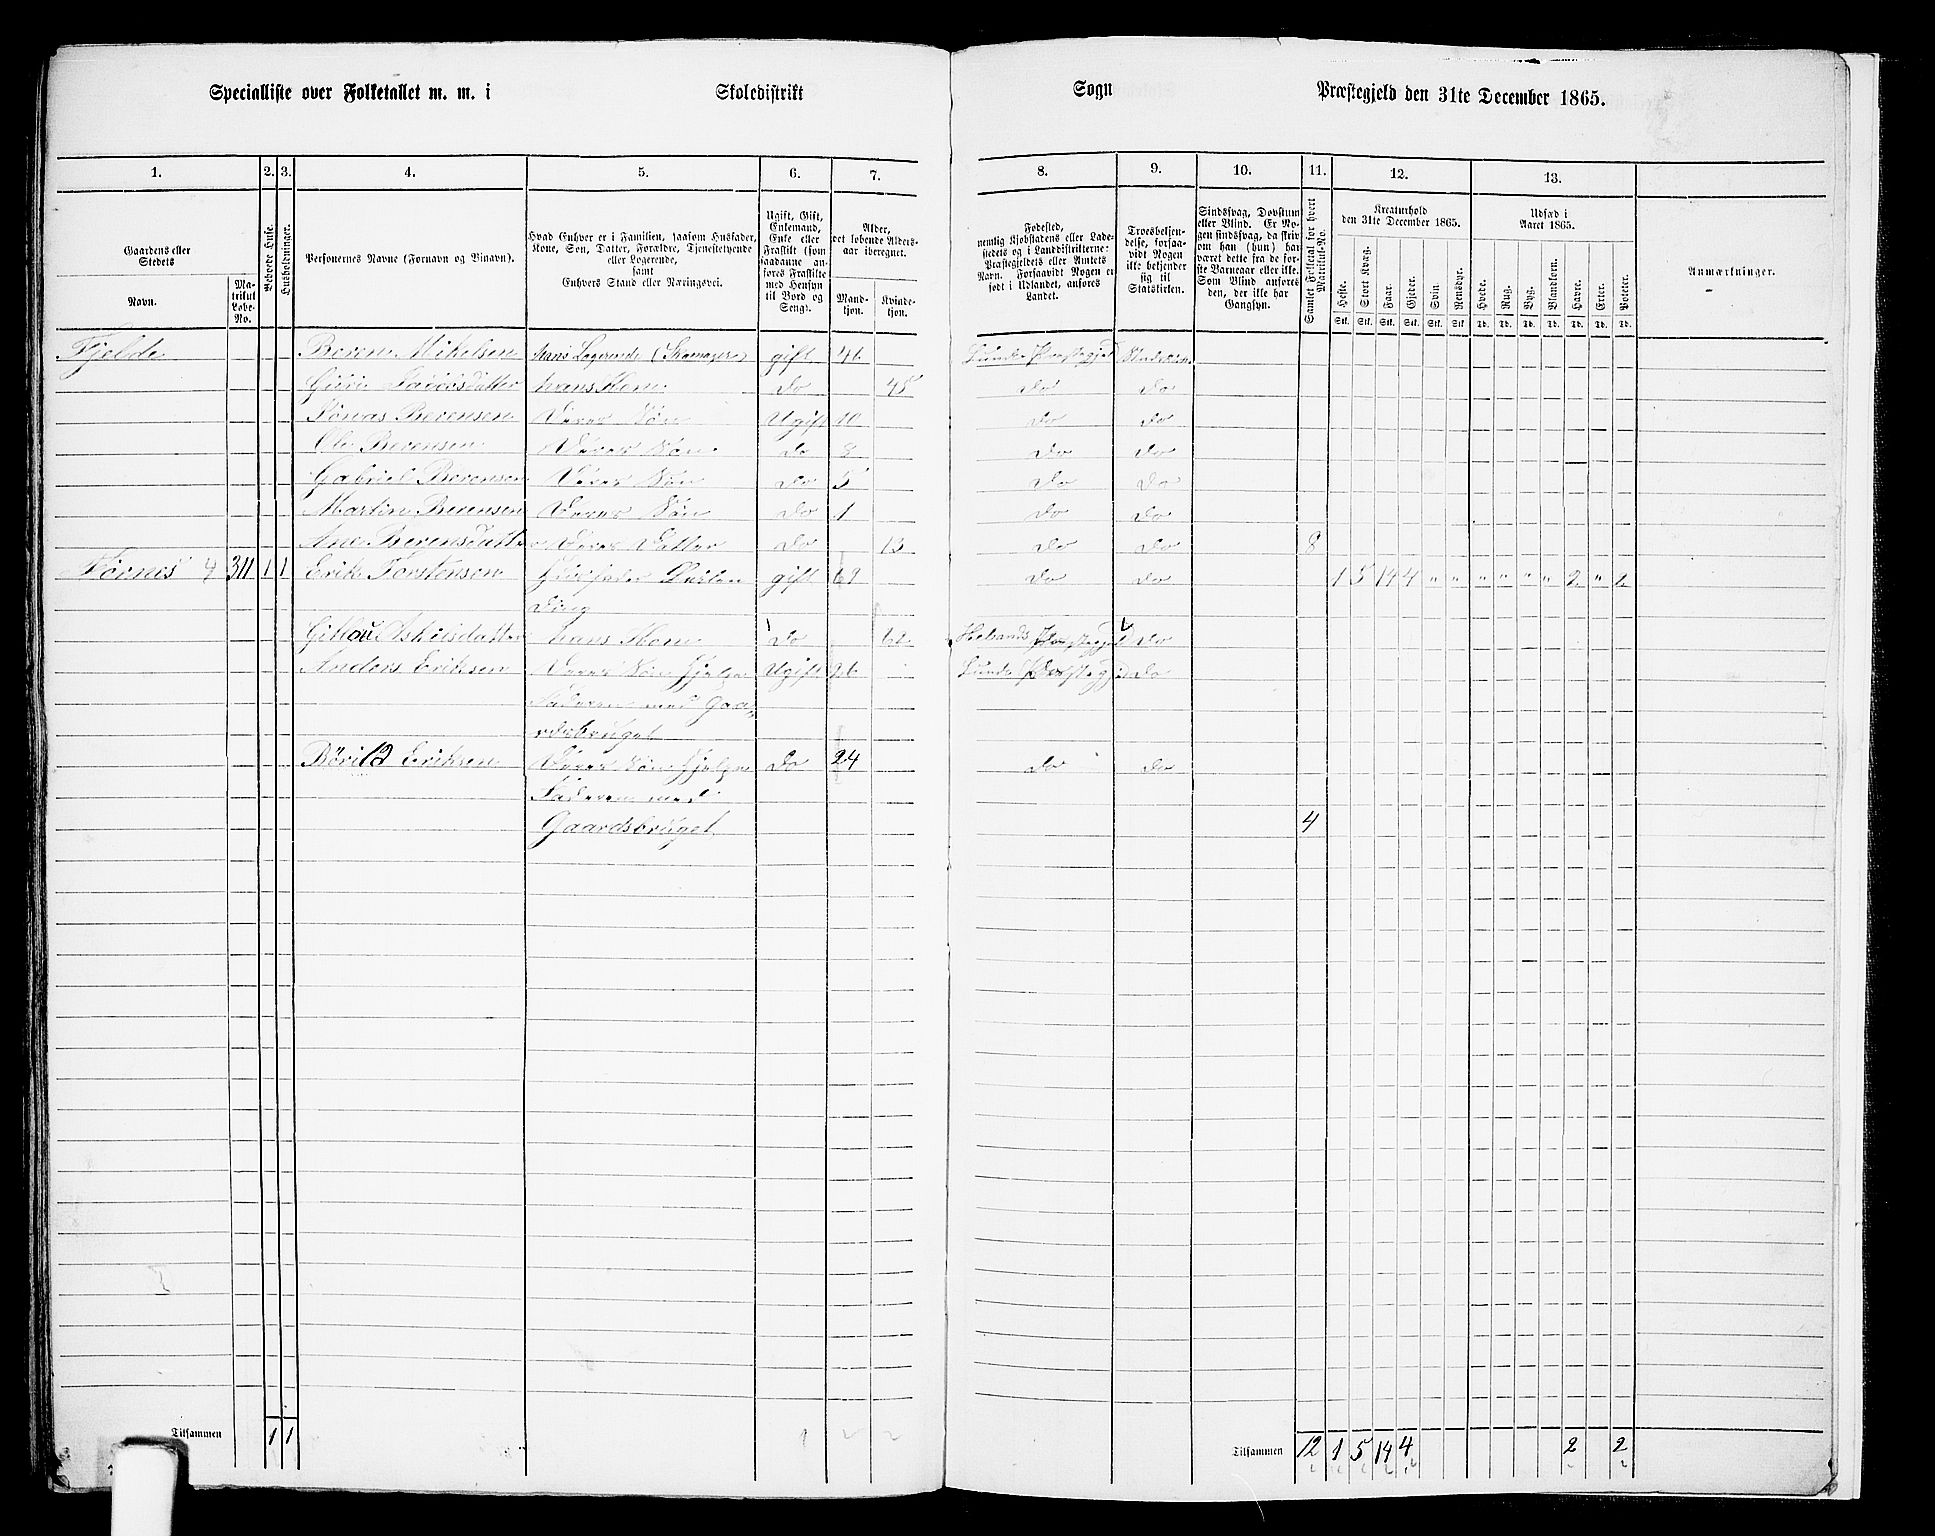 Specialliste over Folketallet m. m. i Skoledistrikt Sogn Præstegjeld den 31te December 1865.
1. 2. 3. 4. 5. 6. 7. 8. 9. 10. 11. 12. 13.
Gaardens eller Stedets
Navn.
Matrikul Løbe-No.
Beboede Huse.
Husholdninger.
Personernes Navne (Fornavn og Binavn).
Hvad Enhver er i Familien, saasom Husfader, Kone, Søn, Datter, Forældre, Tjenestetyende eller Logerende, samt Enhvers Stand eller Næringsvei.
Ugift, Gift, Enkemand, Enke eller Fraskilt (som saadanne anføres Fraskilte med Hensyn til Bord og Seng).
Alder, det løbende Aldersaar iberegnet.
Mandkjøn. Kvindekjøn.
Fødested, nemlig Kjøbstadens eller Ladestedets og i Landdistrikterne: Præstegjeldets eller Amtets Navn. Forsaavidt Nogen er født i Udlandet, anføres Landet.
Troesbekjendelse, forsaavidt Nogen ikke bekjender sig til Statskirken.
Sindssvag, Døvstum eller Blind. Er Nogen sindssvag, da skrives om han (hun) har været dette fra de første Barneaar eller ikke. Som Blind anføres den, der ikke har Gangsyn.
Samlet Folketal for hvert Matrikul-No.
Kreaturhold den 31te December 1865.
Heste. Stort Kvæg. Faar. Gjeder. Svin. Rensdyr.
Udsæd i Aaret 1865.
Hvede. Rug. Byg. Blandkorn. Havre. Erter. Poteter.
Anmærkninger.
Fjelde Beren Mikelsen hans Logerende (Skomager) gift 41 Lunde Præstegjel
Guri datter hans Kone do 45 do do
Jonas Berensen Deres Søn Ugift 10 do do
Ole Berensen Deres Søn do 8 do do
Gabriel Berensen Deres Søn do 5 do do
Martin Berensen Deres Søn do 1 do do
Ane Berensdatter Deres Datter do 13 do do 8
4 311 1 1 Erik Torstensen Huusfader gift 69 do do 1 5 14 4 " " " " " " 2 " 2
Askilsdatter hans Kone do Præstegjel do
Anders Eriksen Deres Søn Hjelper Ugift 26 Lunde Præstegjel do
Faderen med Gaa-
rdsbruget
Eriksen Deres Søn Hjelper do 24 do do
Faderen med
Gaardsbruget 4
Tilsammen 1 1 Tilsammen 12 1 5 14 4 2 2